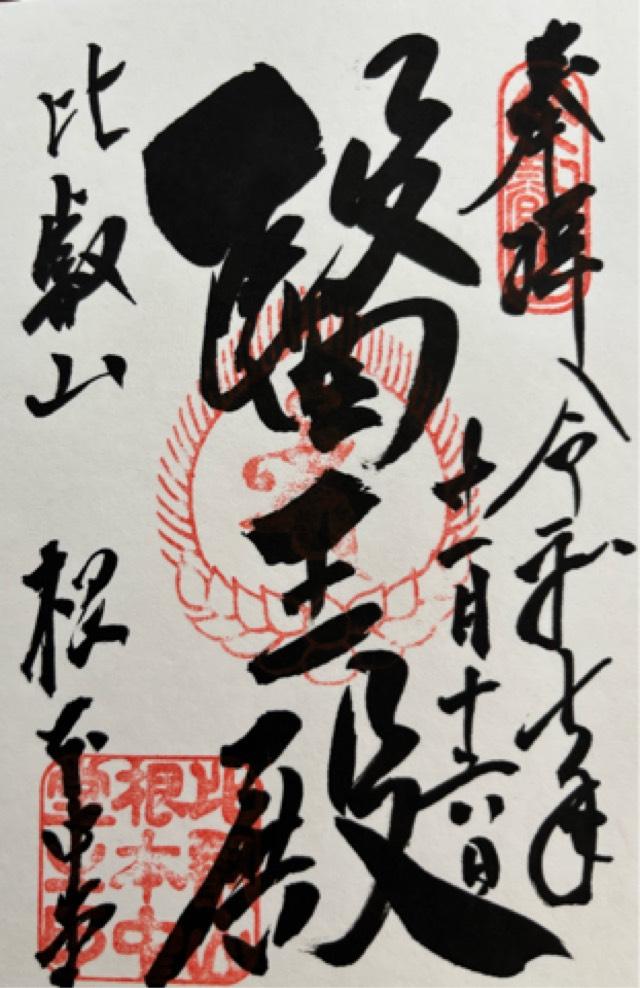 奉拝 令和七年
十一月十六日
醫王殿
比叡山 根本中堂
比叡山
根本中
堂之印